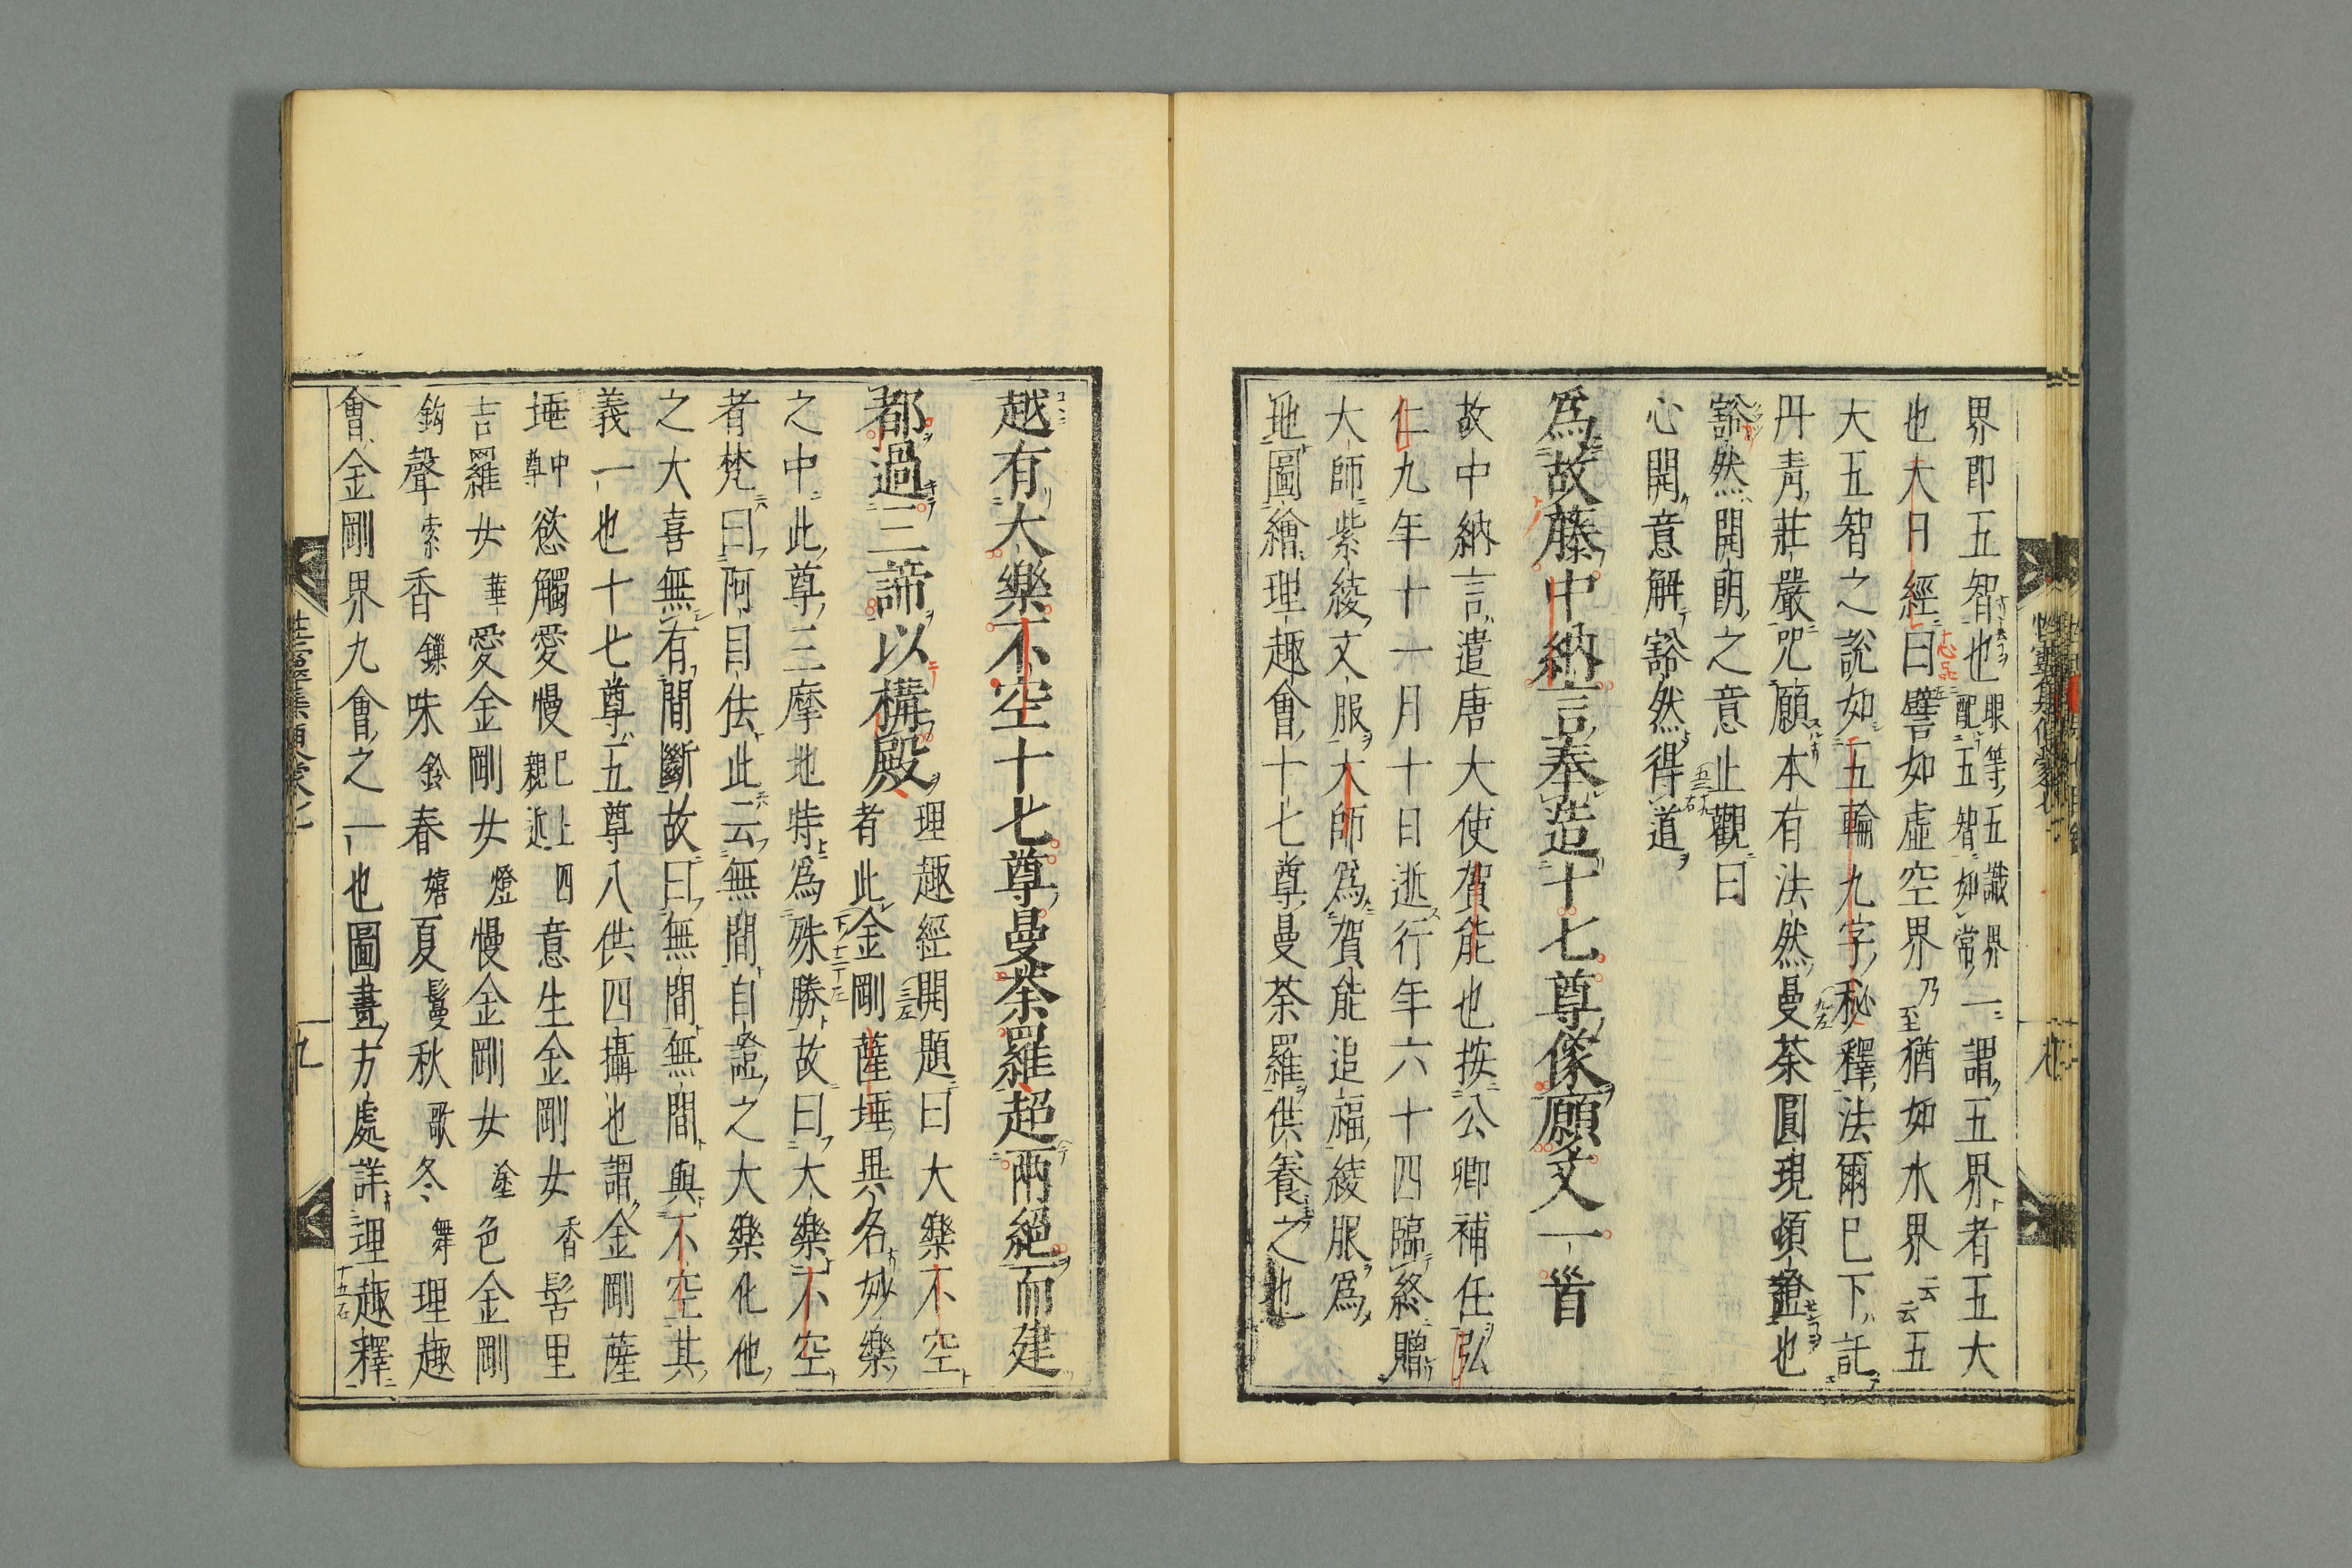 界即五智也眼等五識界一謂五界者五大
配五智如常
也大日經曰譬如虛空界乃至猶如水界云云五
大五智之說如五輪九字秘釋法爾已下託
丹靑莊嚴咒願本有法然曼荼圓現頓證也
豁然開朗之意止觀曰
心開意解豁然得道
爲故藤中納言奉造十七尊像願文一首
故中納言遣唐大使賀能也按公卿補任弘
仁九年十一月十日逝行年六十四臨終贈
大師紫綾文服大師爲賀能追福綾服爲
地圖繪理趣會十七尊曼荼羅供養之也
越有大樂不空十七尊曼荼羅超兩絕而建
都過三諦以構殿理趣經開題曰大樂不空
者此金剛薩埵異名妙樂
之中此尊三摩地特爲殊勝故曰大樂不空
者梵曰阿目佉此云無間自證之大樂化他
之大喜無有間斷故曰無間無間與不空其
義一也十七尊五尊八供四攝也謂金剛薩
埵中尊慾觸愛慢已上四親近意生金剛女香髻里
吉羅女華愛金剛女燈慢金剛女塗色金剛
鈎聲索香鏁味鈴春嬉夏鬘秋歌冬舞理趣
會金剛界九會之一也圖畫方處詳理趣釋
九